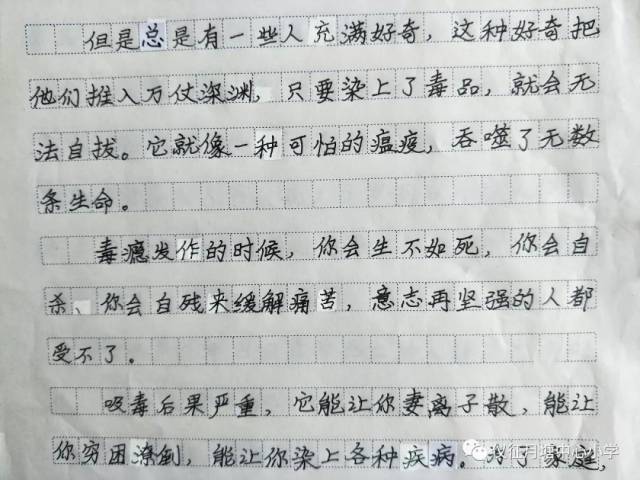 但是总是有一些人充满好奇，这种好奇把
他们推入万丈深渊，只要染上了毒品，就会无
法自拔。它就像一种可怕的瘟疫，吞噬了无数
条生命。
毒瘾发作的时候，你会生不如死，你会自
杀、你会自残来缓解痛苦，意志再坚强的人都
受不了。
吸毒后果严重，它能让你妻离子散，能让
你穷困潦倒，能让你染上各种疾病。为了家庭，
仪征月塘中心小学